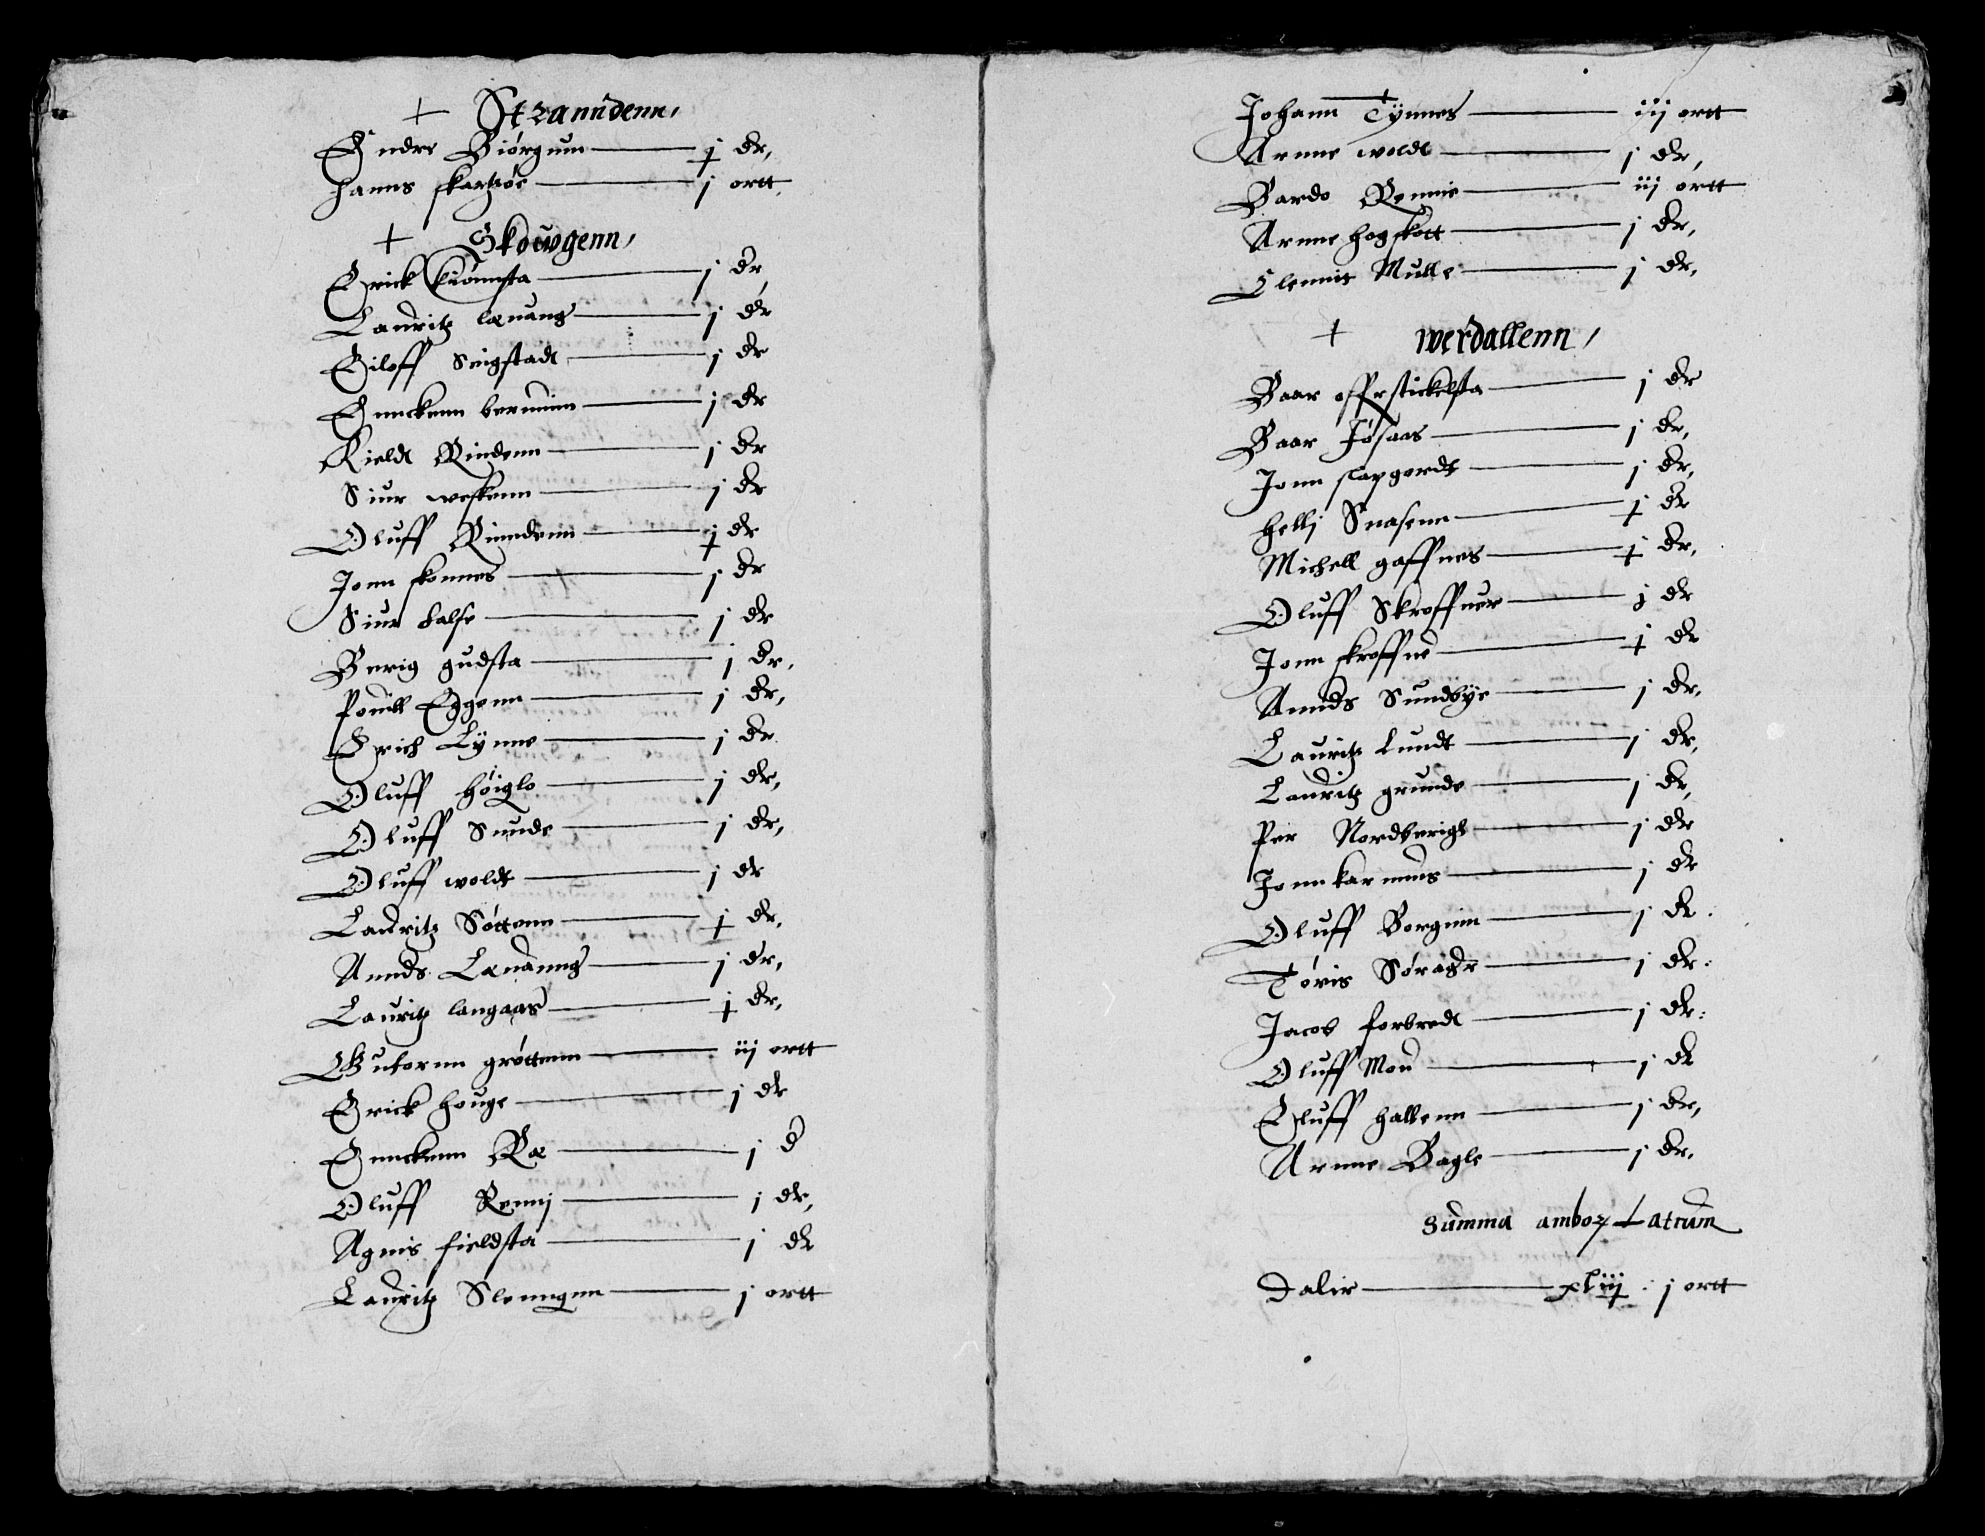 + Stranndenn,
Endre Biórgum — j dr,
Hanns skartzóe — j ortt
+ Skouwgenn,
Erick kiómsta — j dr,
Lauritz læuang — j dr
Eiloff Singstadt — j dr
Enuckenn bermim — j dr
Kieldt Rindenn — j dr
Siur weskenn — j dr
Oluff Rinndenn — j dr
Jonn skonnes — j dr
Siur kalse — j dr
Berig gudsta — j dr,
Pouell Eggenn — j dr,
Erich Lÿnne — j dr
Oluff hóiglo — j dr,
Oluff Sunde — j dr,
Oluff woldt — j dr
Lauritz Sóttenn — j dr,
Annds Læuanng — j dr,
Lauritz langaas — j dr,
Gutorm gróttemm — iij ortt
Erick houge — j dr
Enuckenn Ræ — j d
Oluff Rennj — j dr,
Agnis fieldsta — j dr
Lauritz Slenngnn — j ortt
Johann Tÿnnes — iij ortt
Arnne woldt — j dr,
Bardo Rennie — iij ortt
Arnne hogskott — j dr,
Clemit Mulle — j dr,
+ werdallenn,
Baar offrstickelsta — j dr
Baar Fósaas — j dr,
Jonn slapgordt — j dr,
Hellj Snasenn — j dr
Michell gaffnes — j dr,
Oluff Skroffner — j dr
Jonn skroffne — j dr
Annds Sundbÿe — j dr,
Lauritz Lundt — j dr,
Lauritz grunde — j dr,
Per Nordberigh — j dr
Jonn karmus — j dr
Oluff Borgnim — j dr.
Tóris Sóragr — j dr.
Jacob forbredt — j dr:
Oluff Mou — j dr
Oluff hallenn — j dr,
Arnne Bagle — j dr.
Summa amboꝝ Latrum
Dalir — xliij : j ortt